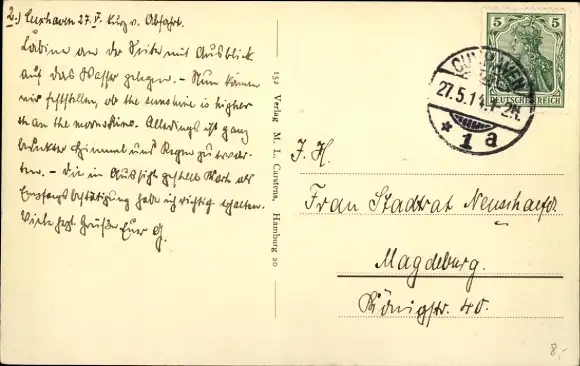 2.) Cuxhaven 27. V. kurz v. Abfahrt.
Kabine an der Seite mit Ausblick
auf das Wasser gelegen. - Nun können
wir feststellen, ob the sunshine is higher
than the moonshine. Allerdings ist ganz
bedeckter Himmel und Regen zu erwar-
ten. - Die in Aussicht gestellte Karte als
Empfangsbestätigung habe ich richtig erhalten.
Viele herzl. Grüße Euer G.
132 Verlag M. L. Carstens, Hamburg 20
5 5
DEUTSCHES REICH
CUXHAVEN
27.5.14. 1-2N.
* 1 a
I. H.
Frau Stadtrat Neuschaefer
Magdeburg.
Königstr. 40.
8,-